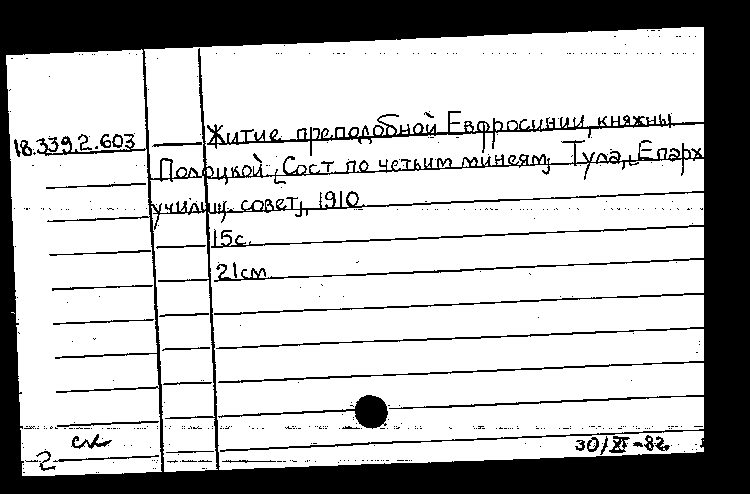 18.339.2.603 Житие преподобной Евфросинии, княжны
Полоцкой. [Сост. по четьим минеям]. Тула, [Епарх.
училищ. совет], 1910.
15с.
21см.
2 30/XI-82.